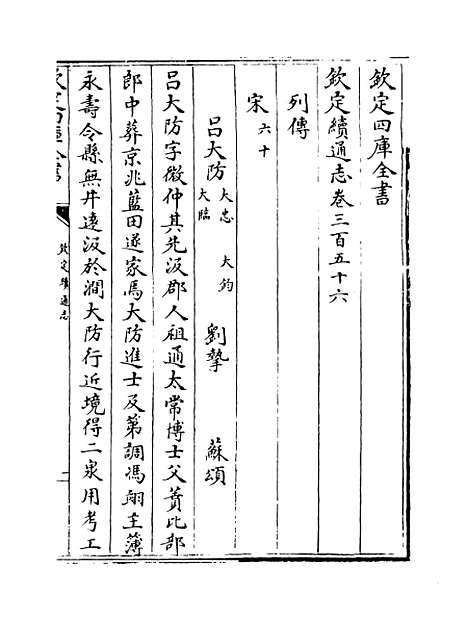 欽定四庫全書
欽定續通志卷三百五十六
列傳
宋六十
呂大防大忠 大鈞 大臨 劉摯 蘇頌
呂大防字微仲其先汲郡人祖通太常博士父蕡比部
郎中葬京兆藍田遂家焉大防進士及第調馮翊主簿
永壽令縣無井遠汲於澗大防行近境得二泉用考工
欽定四庫全書
欽定續通志
一